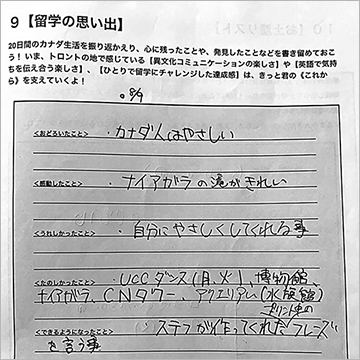 9【留学の思い出】
20日間のカナダ生活を振り返かえり、心に残ったことや、発見したことなどを書き留めておこ
う！いま、トロントの地で感じている【異文化コミュニケーションの楽しさ】や【英語で気持
ちを伝え合う楽しさ】、【ひとりで留学にチャレンジした達成感】は、きっと君の《これか
ら》を支えていくよ！
8/9
<おどろいたこと> ・カナダ人はやさしい
<感動したこと> ・ナイアガラの滝がきれい
<うれしかったこと> ・自分にやさしくしてくれる事
<たのしかったこと> ・UCCダンス(月、火)、博物館、
ナイアガラ、CNタワー、アクエリアム(水族館)
プリント中の
<できるようになったこと> ステフが作ってくれたフレーズ
を言う事